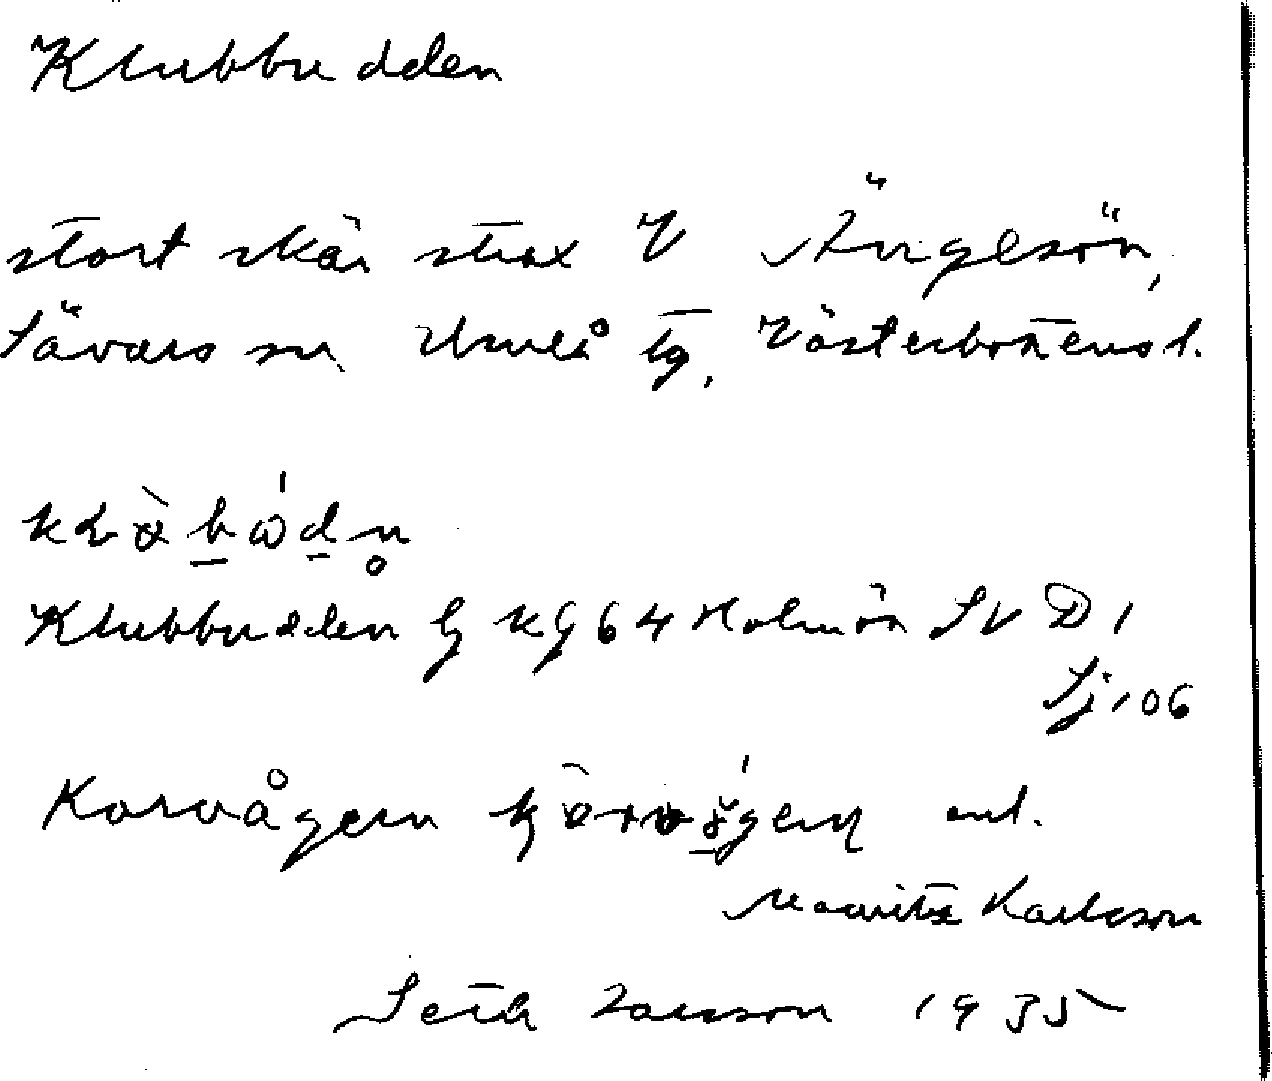 Klubbudden
stort skär strax V Ängesön,
Sävars sn Umeå tg, Västerbottens l.
Klubbudden kg 64 Holmön SV D1
Sj 106
Korvågern enl.
Mauritz Karlsson
Seth Larsson 1935